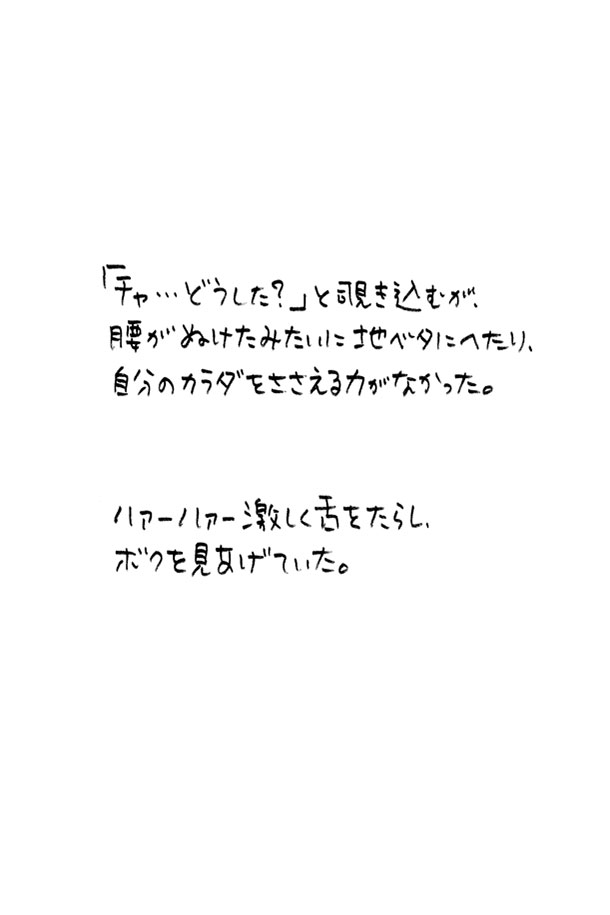 「チャ…どうした？」と覗き込むが、
腰がぬけたみたいに地ベタにへたり、
自分のカラダをささえる力がなかった。
ハァーハァー激しく舌をたらし、
ボクを見あげていた。